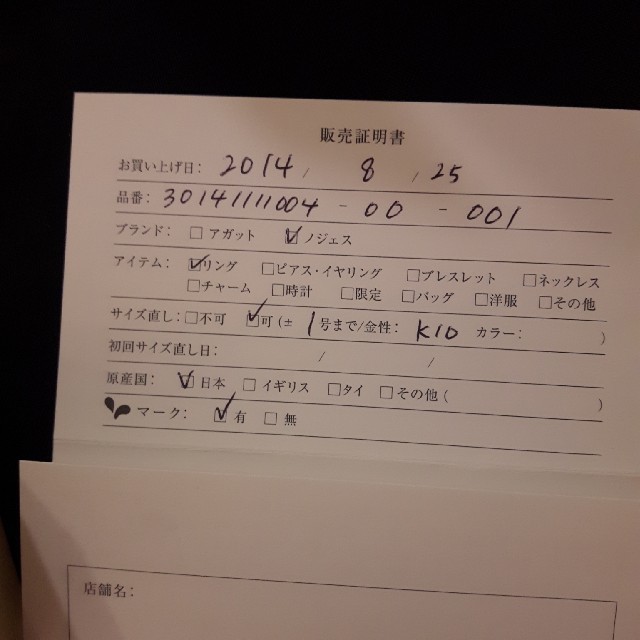 販売証明書
お買い上げ日: 2014 / 8 / 25
品番: 30141111004 - 00 - 001
ブランド: □ アガット ☑ ノジェス
アイテム: ☑リング □ピアス・イヤリング □ブレスレット □ネックレス
□チャーム □時計 □限定 □バッグ □洋服 □その他
サイズ直し: □不可 ☑可 (± 1号まで/金性: K10 カラー: )
初回サイズ直し日: / /
原産国: ☑日本 □イギリス □タイ □その他 ( )
マーク: ☑有 □無
店舗名: